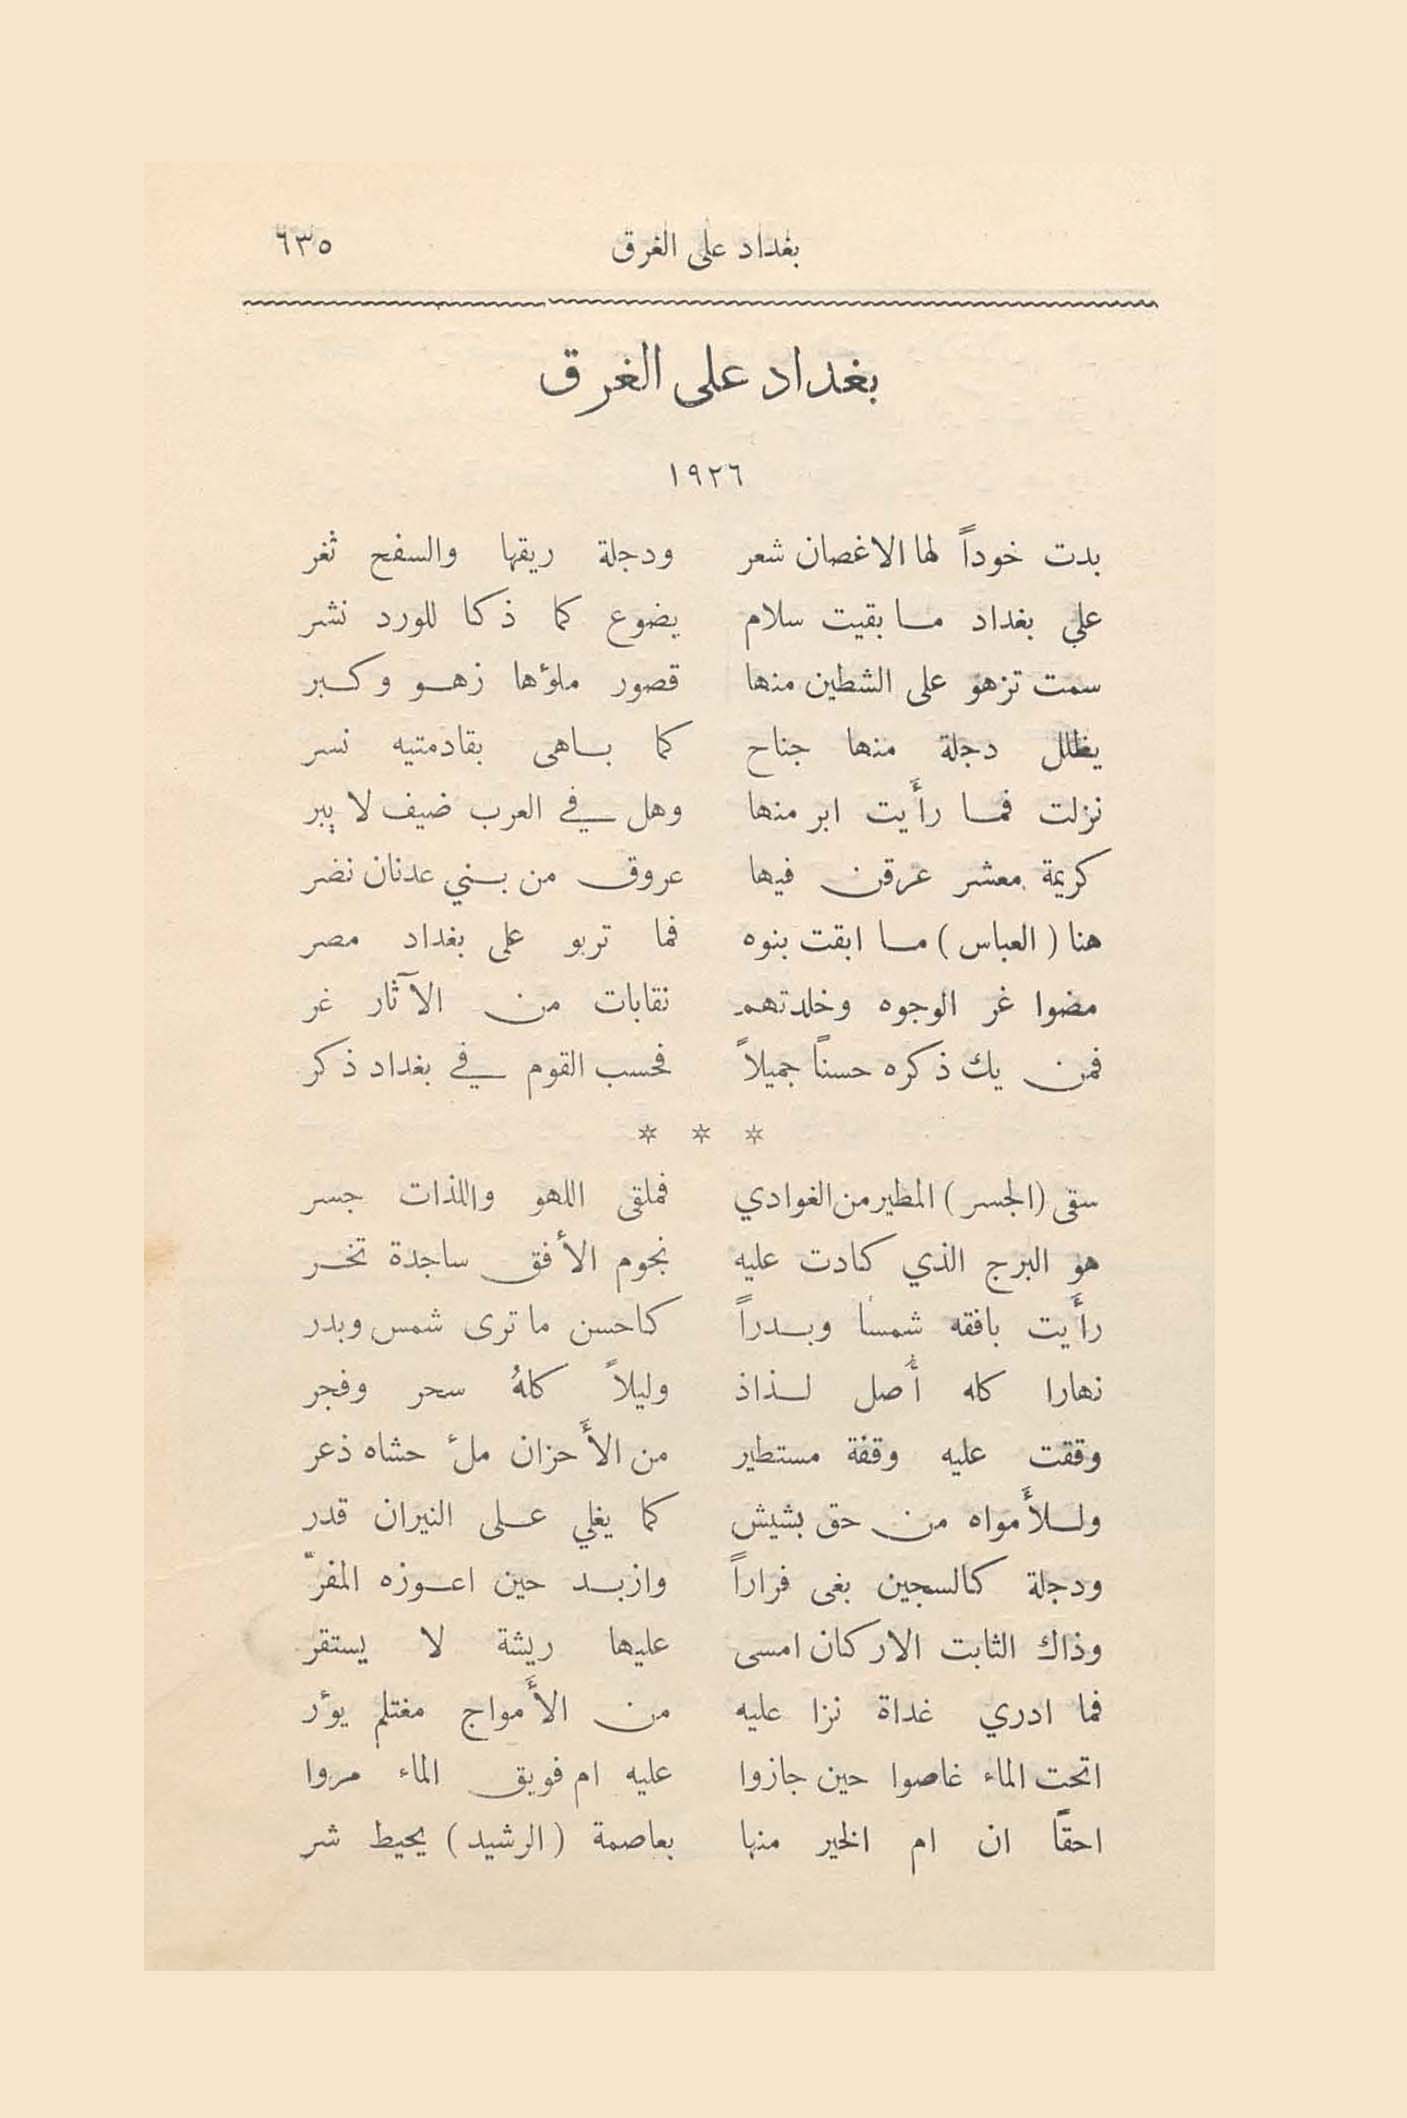 بغداد على الغرق ٦٣٥
بغداد على الغرق
١٩٢٦
بدت خوداً لها الاغصان شعر ودجلة ريقها والسفح ثغر
على بغداد ما بقيت سلام يضوع كما ذكا للورد نشر
سمت تزهو على الشطين منها قصور ملؤها زهو وكبر
يظلل دجلة منها جناح كما باهى بقادمتيه نسر
نزلت فما رأَيت ابر منها وهل في العرب ضيف لا يبر
كريمة معشر عرقن فيها عروق من بني عدنان نضر
هنا (العباس) ما ابقت بنوه فما تربو على بغداد مصر
مضوا غر الوجوه وخلدتهم نقابات من الآثار غر
فمن يك ذكره حسناً جميلاً فحسب القوم في بغداد ذكر
* * *
سقى (الجسر) المطير من الغوادي فملقى اللهو واللذات جسر
هو البرج الذي كادت عليه نجوم الأفق ساجدة تخر
رأَيت بافقه شمساً وبدراً كاحسن ما ترى شمس وبدر
نهارا كله أُصل لذاذ وليلاً كلهُ سحر وفجر
وقفت عليه وقفة مستطير من الأَحزان ملئ حشاه ذعر
وللأَمواه من حق بشيش كما يغلي على النيران قدر
ودجلة كالسجين بغى فراراً وازبد حين اعوزه المفرّ
وذاك الثابت الاركان امسى عليها ريشة لا يستقر
فما ادري غداة نزا عليه من الأَمواج مغتلم يؤر
اتحت الماء غاصوا حين جازوا عليه ام فويق الماء مروا
احقاً ان ام الخير منها بعاصمة (الرشيد) يحيط شر